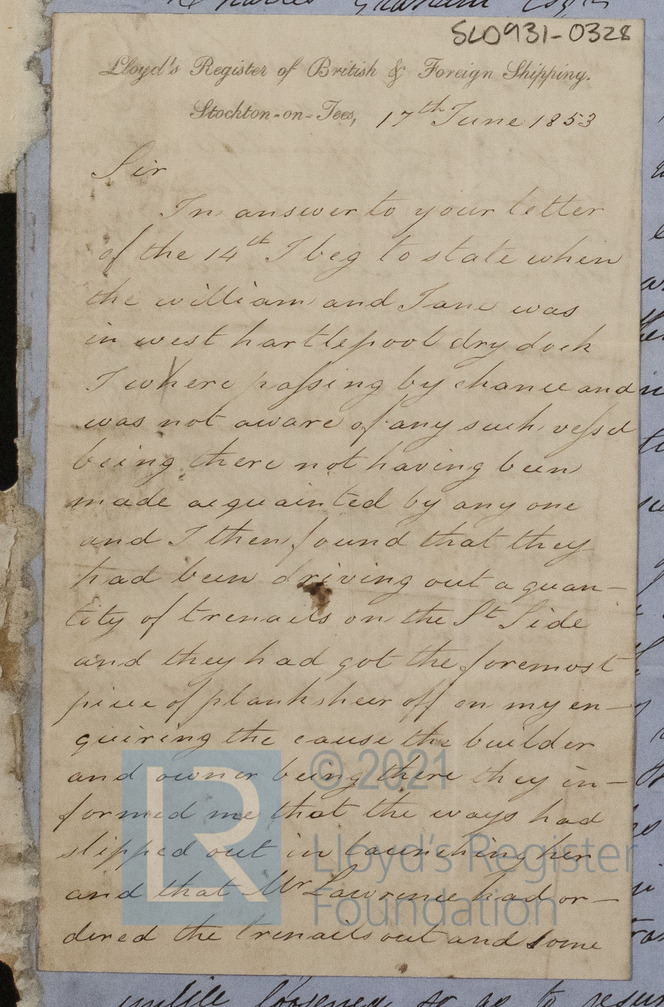 Charles Graham Esqre
SLD931-0328
Lloyd's Register of British & Foreign Shipping.
Stockton-on-Tees, 17th June 1853
Sir
In answer to your letter
of the 14th I beg to state when
the william and Jane was
in west hartlepool dry dock
I where passing by chance and
was not aware of any such vessel
being there not having been
made acquainted by any one
and I then found that they
had been driving out a quan-
tity of trenails on the St Side
and they had got the foremost
piece of planksheer off on my en-
quiring the cause the builder
and owner being there they in-
formed me that the ways had
slipped out in launching her
and that Mr Lawrence had or-
dered the trenails out and some
© 2021
LR
Lloyd's Register
Foundation
untile loosened so as to